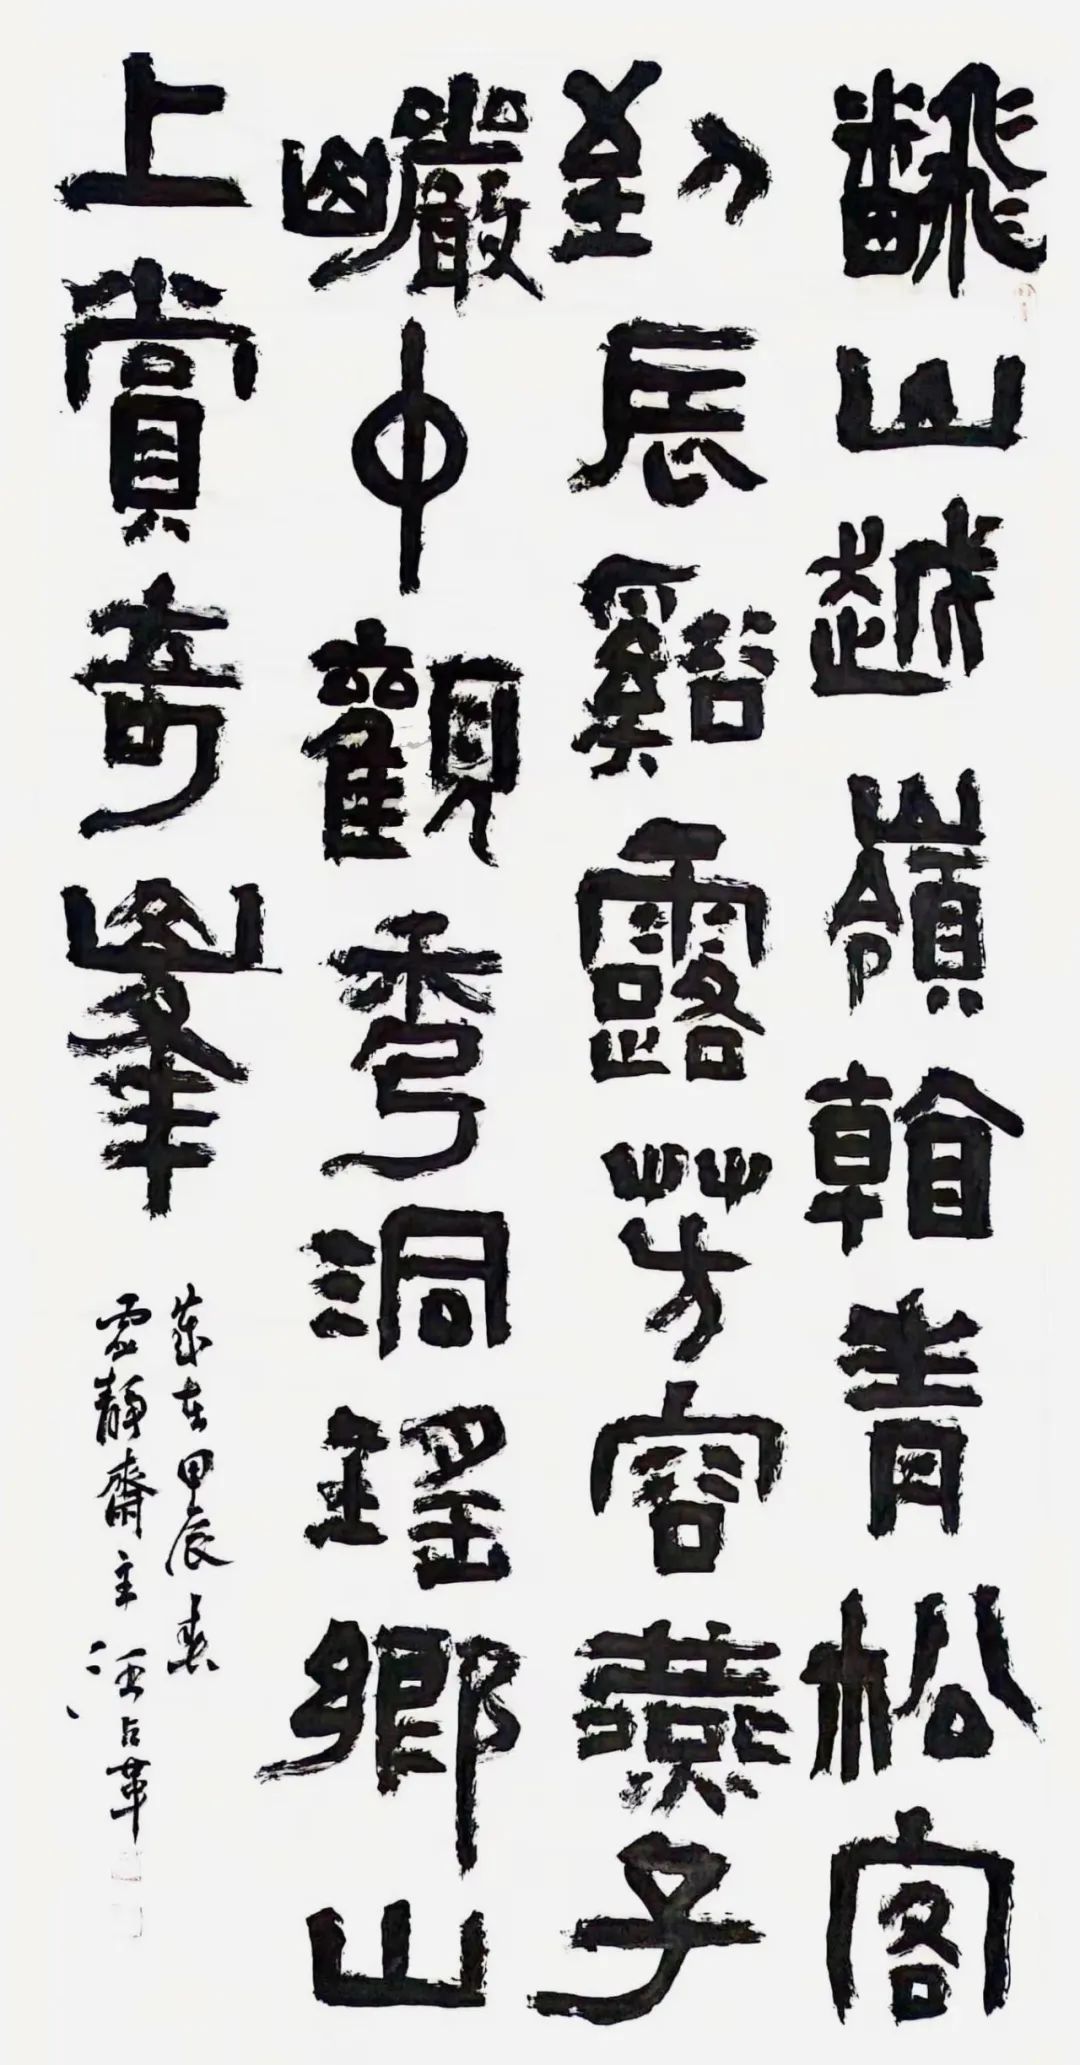 飜山越嶺青松客
到辰谿露芳容燕子
巖中觀秀洞瑤鄉山
上賞奇峯
歲在甲辰春
虛靜齋主汪占革